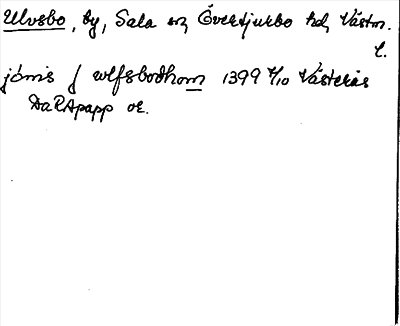 Ulvsbo, by, Sala sn, Övertjurbo hd, Västm.
l.
jönis j wlfsbodhom 1399 4/10 Västerås
DaRApapp or.